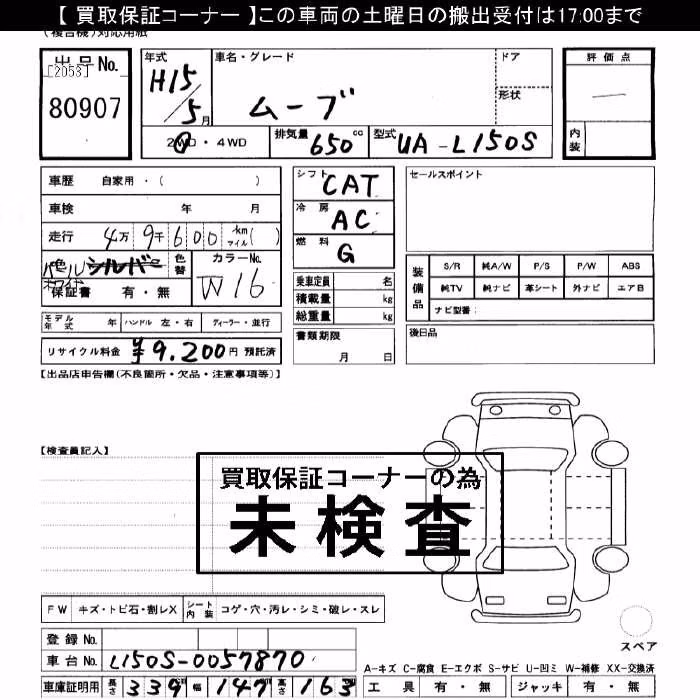 【 買取保証コーナー 】この車両の土曜日の搬出受付は17:00まで
(複合機)対応用紙
出品No.
[2053]
80907
年式
H15/5月
車名・グレード
ムーブ
ドア
形状
評価点
—
内装
2WD・4WD
排気量 650 cc
型式 UA-L150S
車歴 自家用・( )
車検 年 月
走行 4万 9千 6 0 0 km マイル ( )
色 シルバー
パールホワイト
色替
カラーNo.
W16
保証書 有・無
モデル年式 年 ハンドル 左・右 ディーラー・並行
リサイクル料金 ¥9,200円 預託済
シフト CAT
冷房 AC
燃料 G
乗車定員 名
積載量 kg
総重量 kg
書類期限
月 日
セールスポイント
装備品
S/R 純A/W P/S P/W ABS
純TV 純ナビ 革シート 外ナビ エアB
ナビ型番:
後日品
【出品店申告欄(不良箇所・欠品・注意事項等)】
【検査員記入】
買取保証コーナーの為
未検査
FW キズ・トビ石・割レX シート内装 コゲ・穴・汚レ・シミ・破レ・スレ
登録No.
車台No. L150S-0057870
車庫証明用 長さ 339 幅 147 高さ 163
スペア
A-キズ C-腐食 E-エクボ S-サビ U-凹ミ W-補修 XX-交換済
工具 有・無 ジャッキ 有・無